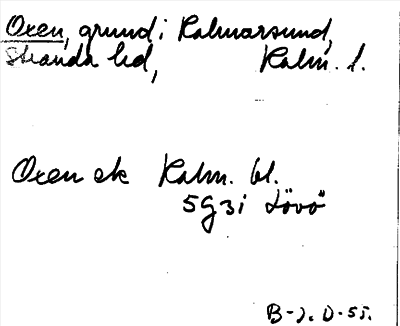 Oxen, grund i Kalmarsund,
Stranda hd, Kalm. l.
Oxen ek Kalm. bl.
5G3i Lövö
B-2. D-55.